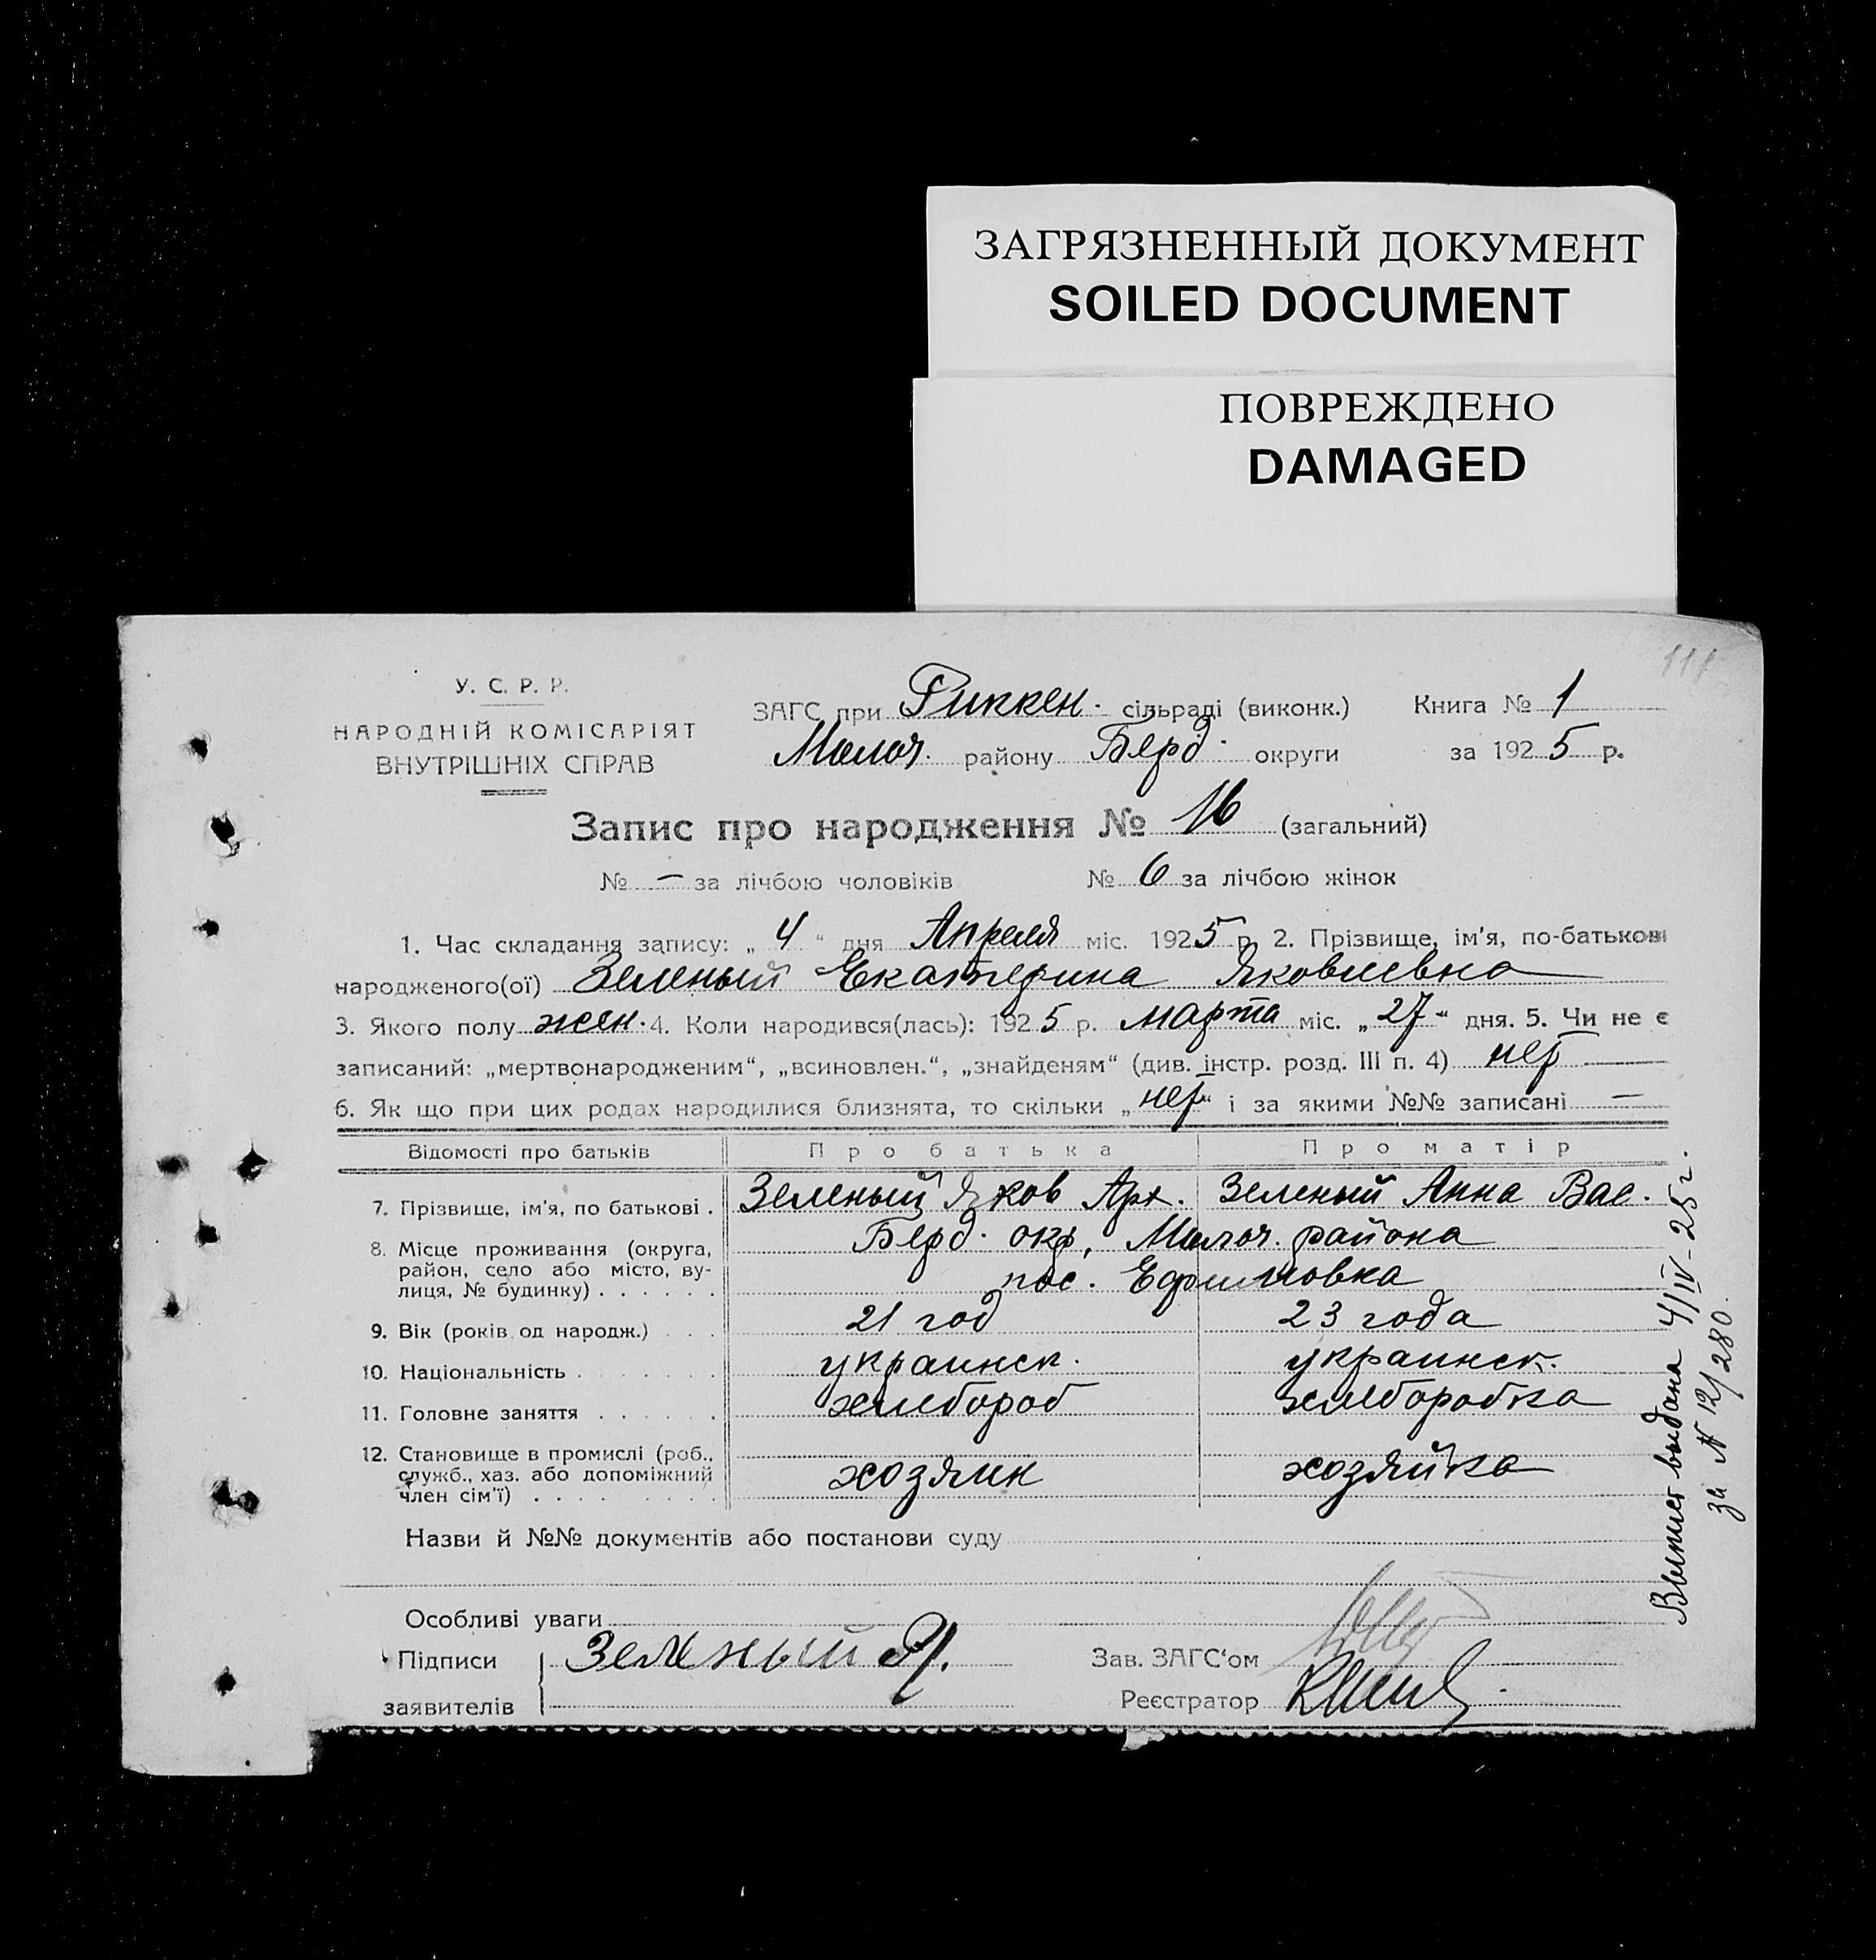 ЗАГРЯЗНЕННЫЙ ДОКУМЕНТ
SOILED DOCUMENT
ПОВРЕЖДЕНО
DAMAGED
У. С. Р. Р.
НАРОДНІЙ КОМІСАРІЯТ
ВНУТРІШНІХ СПРАВ
ЗАГС при Риккен. сільраді (виконк.) Книга № 1
Молоч. району Берд. округи за 1925 р.
Запис про народження № 16 (загальний)
№ — за лічбою чоловіків № 6 за лічбою жінок
1. Час складання запису: „ 4 “ дня Апреля міс. 1925 р. 2. Прізвище, ім’я, по-батькові
народженого(ої) Зеленый Екатерина Яковлевна
3. Якого полу жен. 4. Коли народився(лась): 1925 р. марта міс. „ 27 “ дня. 5. Чи не є
записаний: „мертвонародженим“, „всиновлен.“, „знайденям“ (див. інстр. розд. III п. 4) нет
6. Як що при цих родах народилися близнята, то скільки „ нет “ і за якими №№ записані —
Відомості про батьків Про батька Про матір
7. Прізвище, ім’я, по батькові . Зеленый Яков Арх. Зеленый Анна Вас.
8. Місце проживання (округа, район, село або місто, ву-
лиця, № будинку) . . . . . . Берд. окр, Молоч. района
пос. Ефимовка
9. Вік (років од народж.) . . . 21 год 23 года
10. Національність . . . . . . . украинск. украинск.
11. Головне заняття . . . . . . хлебороб хлеборобка
12. Становище в промислі (роб.,
служб., хаз. або допоміжний
член сім’ї) . . . . . . . . . хозяин хозяйка
Назви й №№ документів або постанови суду
Особливі уваги
Підписи
заявителів Зеленый Я.
Зав. ЗАГС‘ом
Реєстратор
Выпись выдана 4/IV-25 г.
за № 12/280.